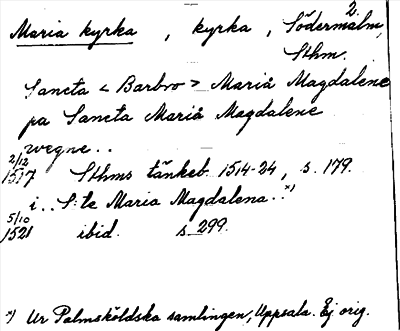 2.
Maria kyrka , kyrka , Södermalm,
Sthm.
Sancta < Barbro > Mariå Magdalene
pa Sancta Mariå Magdalene
wegne..
2/12
1517 Sthms tänkeb. 1514-24, s. 179.
i.. S:te Maria Magdalena..*)
5/10
1521 ibid. s. 299.
*) Ur Palmsköldska samlingen, Uppsala. Ej orig.